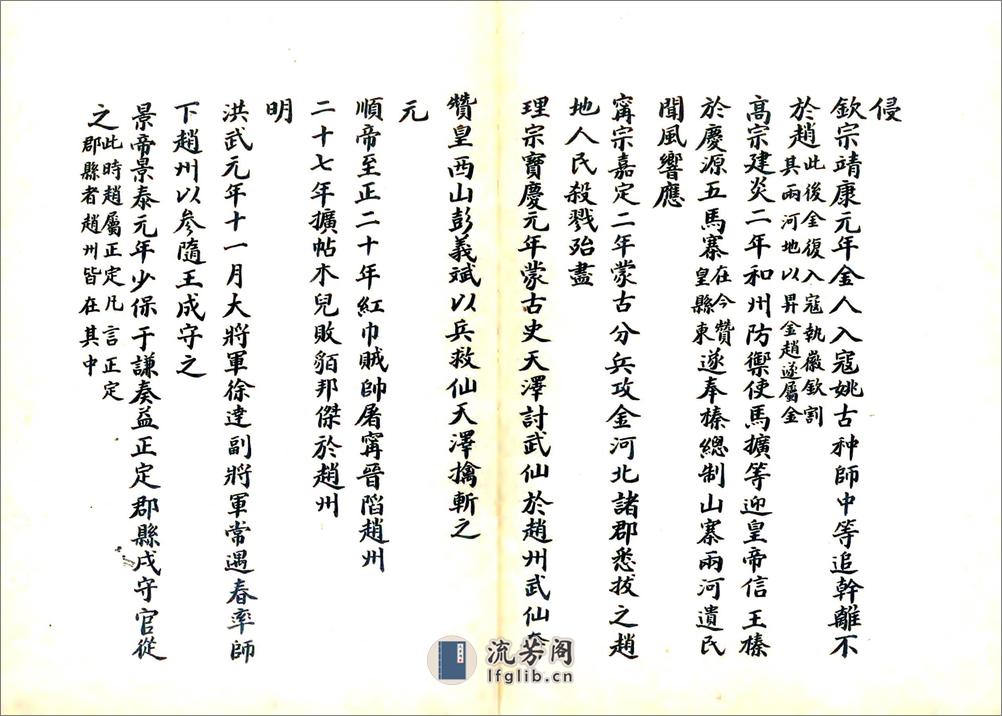 侵
欽宗靖康元年金人入寇姚古种師中等追幹離不
於趙此後金復入寇執徽欽割其兩河地以畀金趙遂屬金
高宗建炎二年和州防禦使馬擴等迎皇帝信王榛
於慶源五馬寨在今贊皇縣東遂奉榛總制山寨兩河遺民
聞風響應
甯宗嘉定二年蒙古分兵攻金河北諸郡悉拔之趙
地人民殺戮殆盡
理宗寶慶元年蒙古史天澤討武仙於趙州武仙奔
贊皇西山彭義斌以兵救仙天澤擒斬之
元
順帝至正二十年紅巾賊帥屠甯晉陷趙州
二十七年擴帖木兒敗貊邦傑於趙州
明
洪武元年十一月大將軍徐達副將軍常遇春率師
下趙州以參隨王成守之
景帝景泰元年少保于謙奏益正定郡縣戍守官從
之此時趙屬正定凡言正定郡縣者趙州皆在其中
流芳阁
lfglib.cn